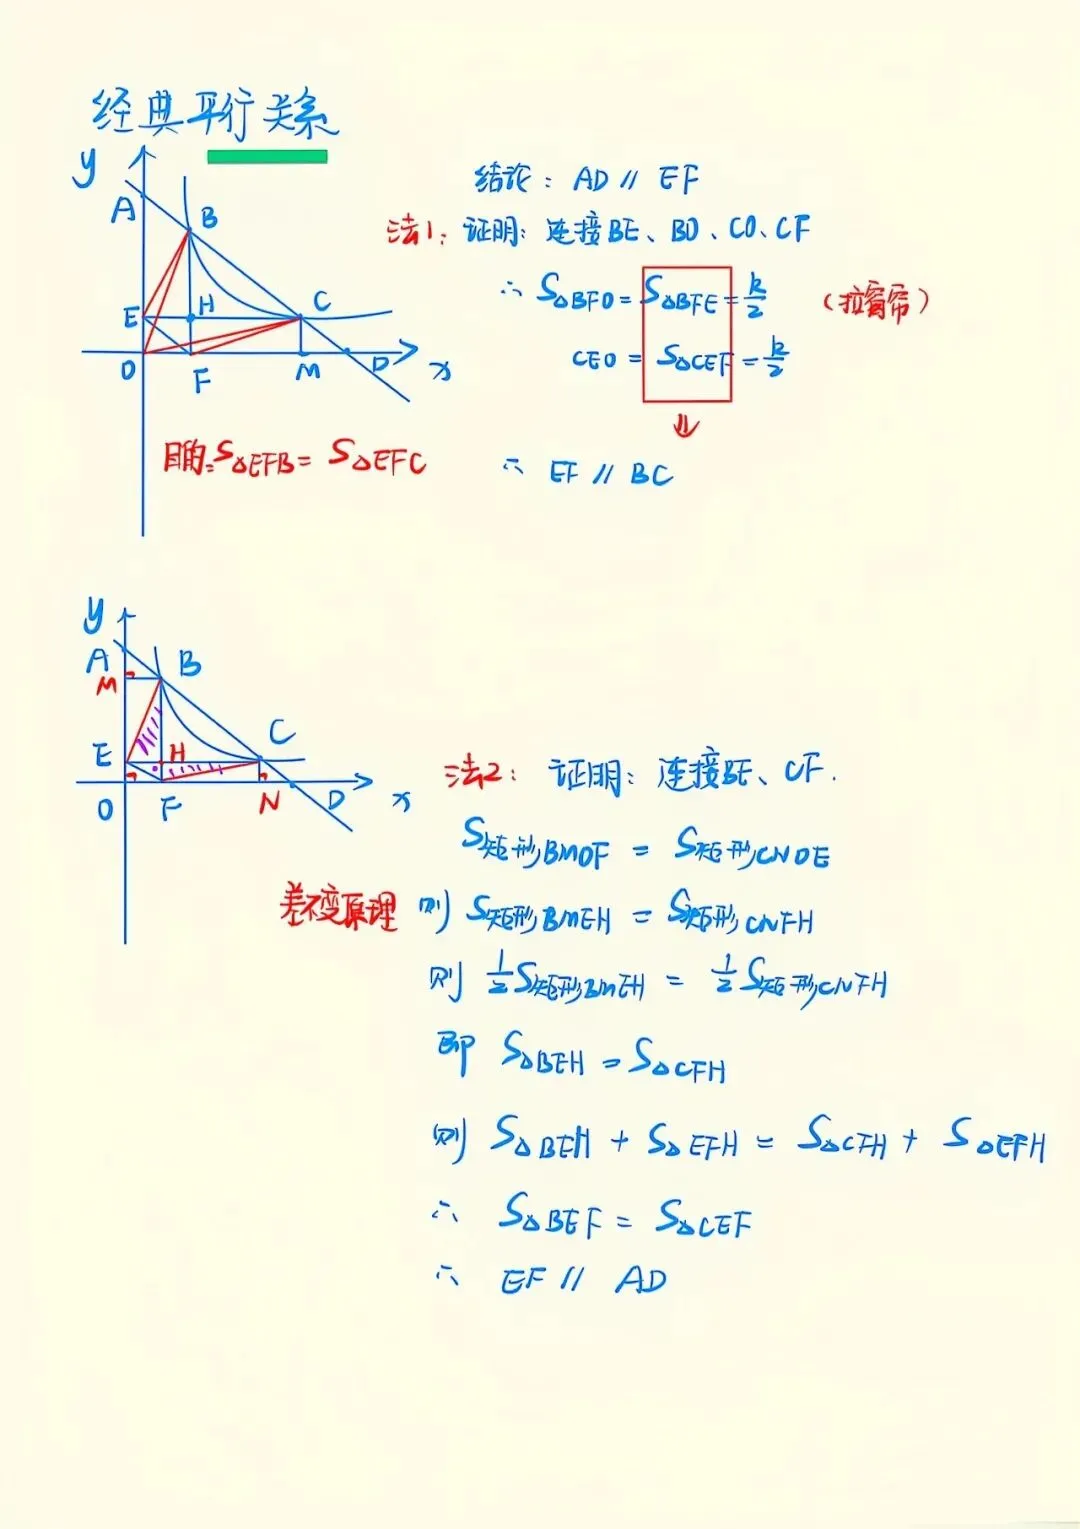 经典平行关系
y
A
B
E
H
C
O
F
M
D
x
结论：AD // EF
法1：证明：连接BE、BO、CO、CF
∴ S△BFO = S△BFE = k/2 （拉窗帘）
CEO = S△CEF = k/2
⇓
目的：S△EFB = S△EFC
∴ EF // BC
y
A
M
B
E
H
C
O
F
N
D
x
法2：证明：连接BE、CF.
S矩形BMOF = S矩形CNOE
差不变原理 则 S矩形BMEH = S矩形CNFH
则 1/2 S矩形BMEH = 1/2 S矩形CNFH
即 S△BEH = S△CFH
则 S△BEH + S△EFH = S△CFH + S△EFH
∴ S△BEF = S△CEF
∴ EF // AD